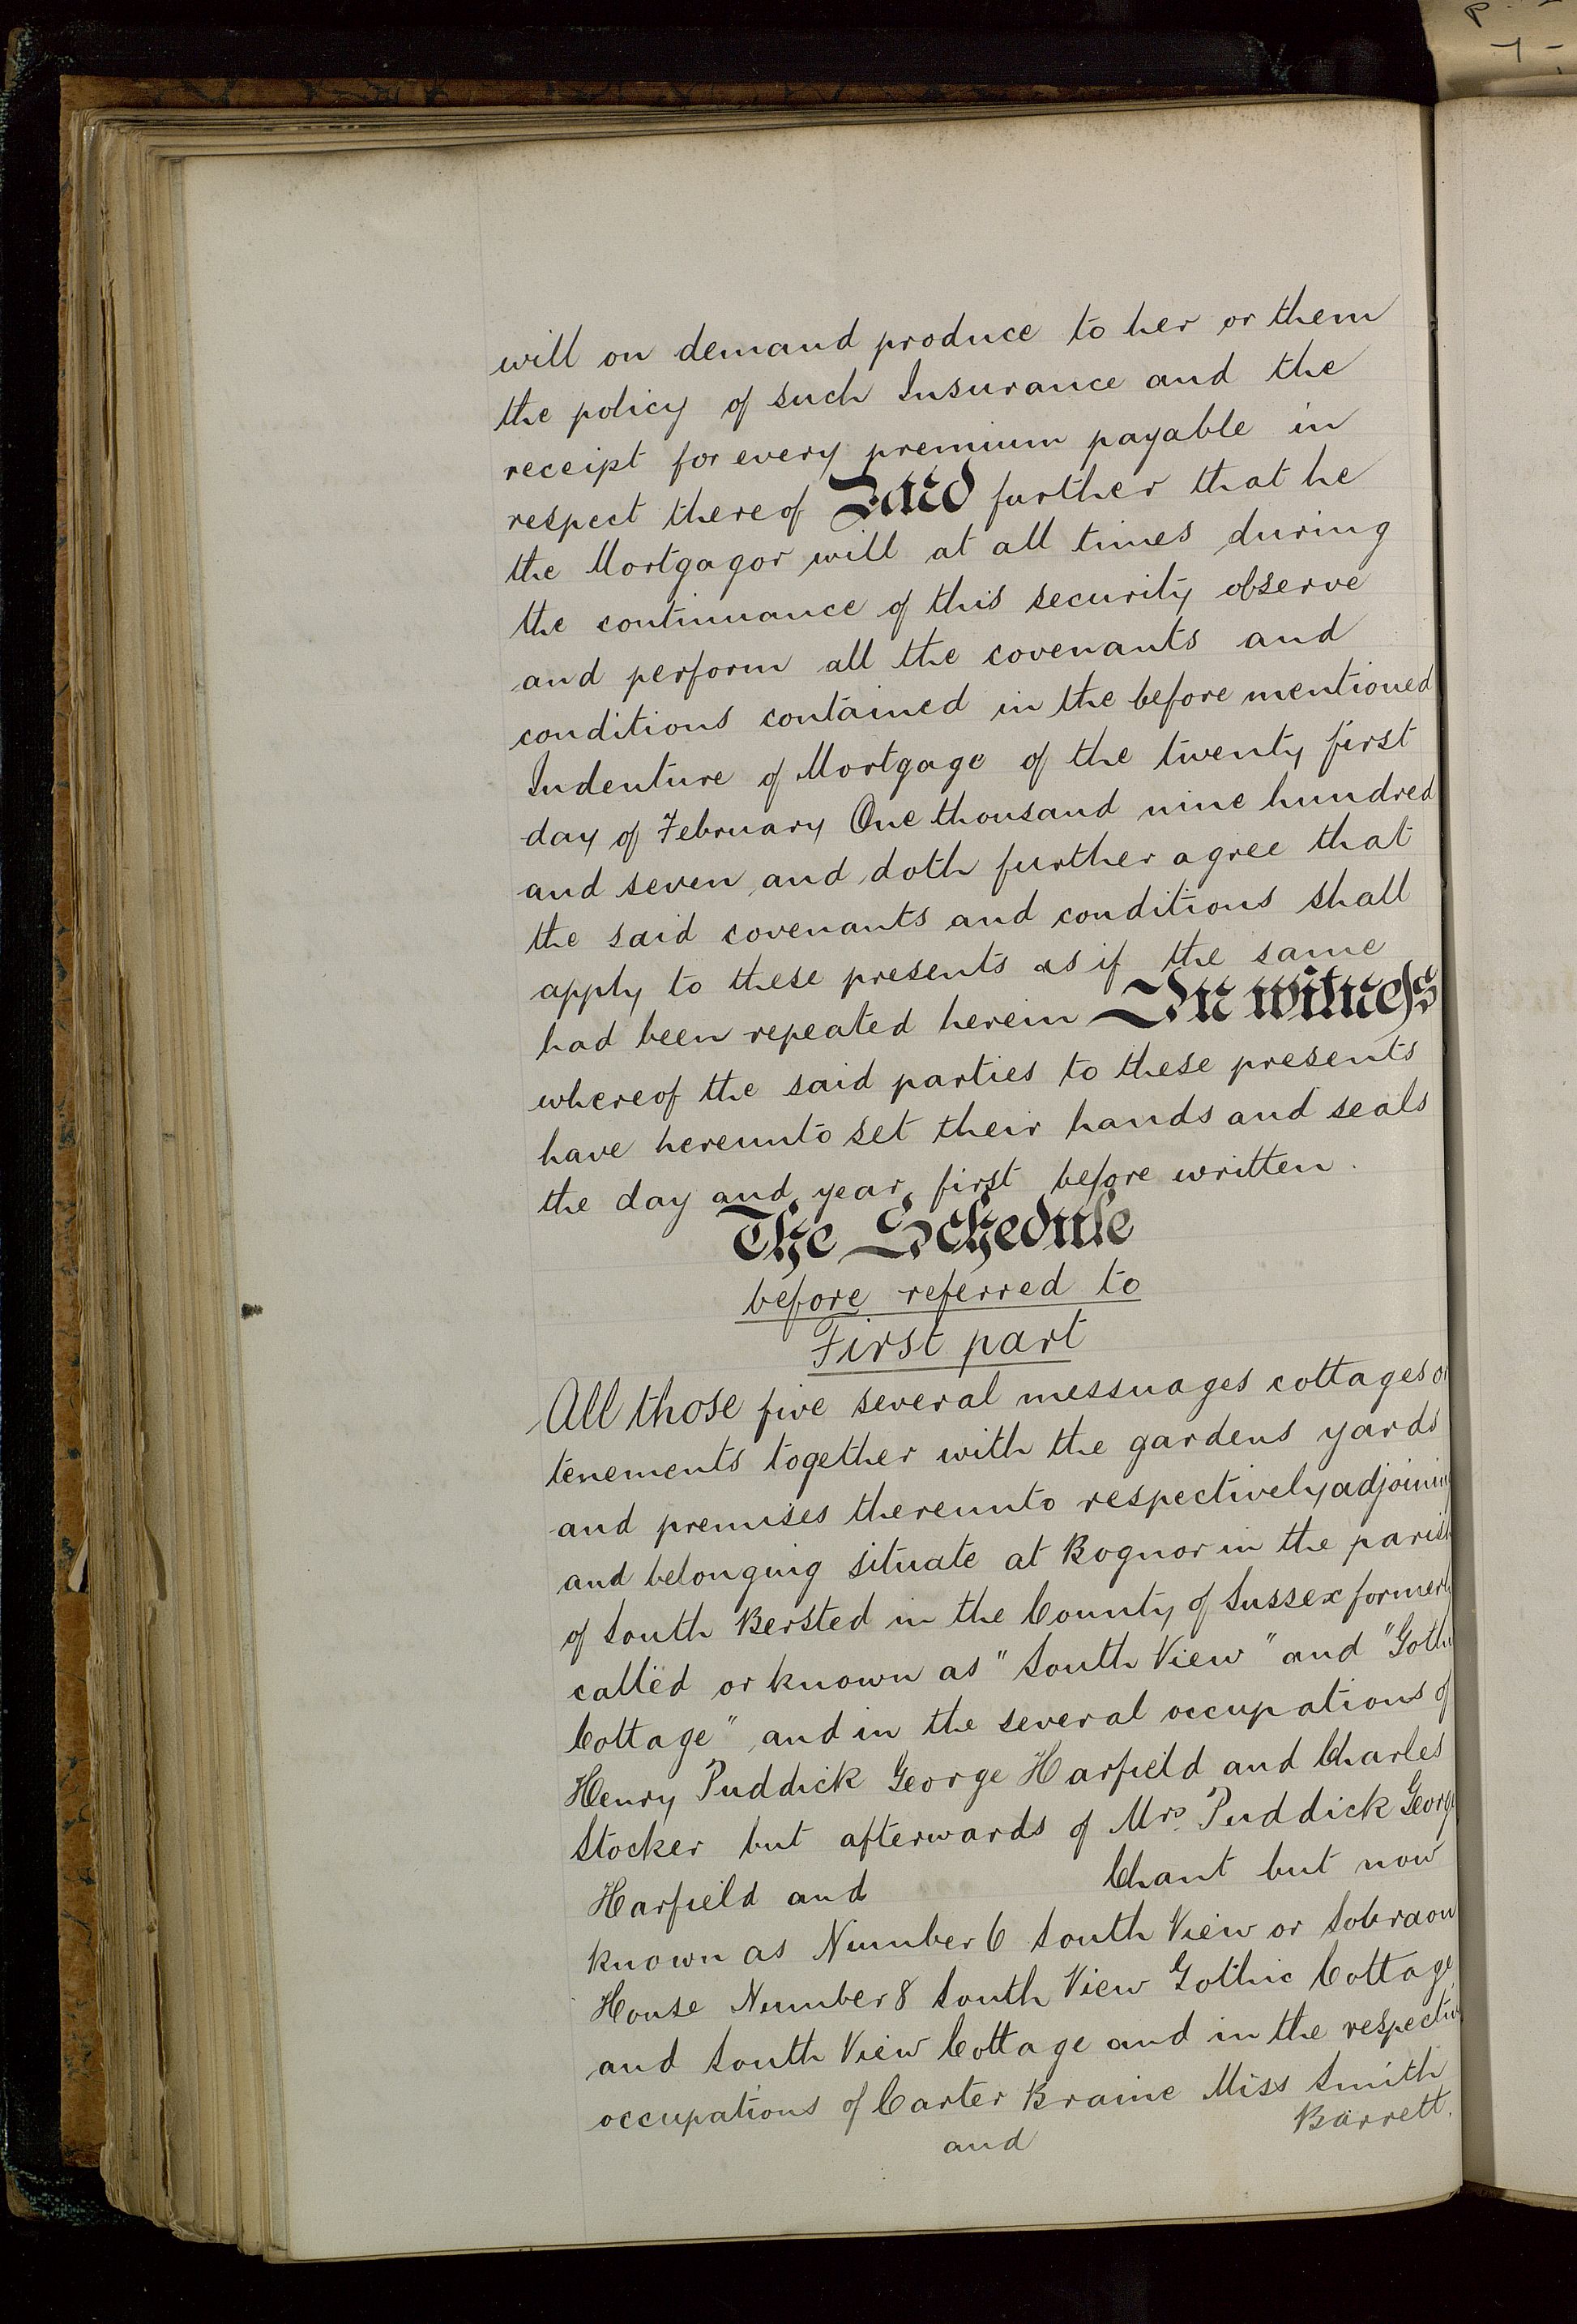 will on demand produce to her or them
the policy of such Insurance and the
receipt for every premium payable in
respect thereof And further that he
the Mortgagor will at all times during
the continuance of this security observe
and perform all the covenants and
conditions contained in the before mentioned
Indenture of Mortgage of the twenty first
day of February One thousand nine hundred
and seven and doth further agree that
the said covenants and conditions shall
apply to these presents as if the same
had been repeated herein In witness
whereof the said parties to these presents
have hereunto set their hands and seals
the day and year first before written.
The Schedule
before referred to
First part
All those five several messuages cottages or
tenements together with the gardens yards
and premises thereunto respectively adjoining
and belonging situate at Bognor in the parish
of South Bersted in the County of Sussex formerly
called or known as "South View" and "Gothic
Cottage" and in the several occupations of
Henry Puddick George Harfield and Charles
Stocker but afterwards of Mrs. Puddick George
Harfield and Chant but now
known as Number 6 South View or Sobraon
House Number 8 South View Gothic Cottage
and South View Cottage and in the respective
occupations of Carter Braine Miss Smith
and Barrett.